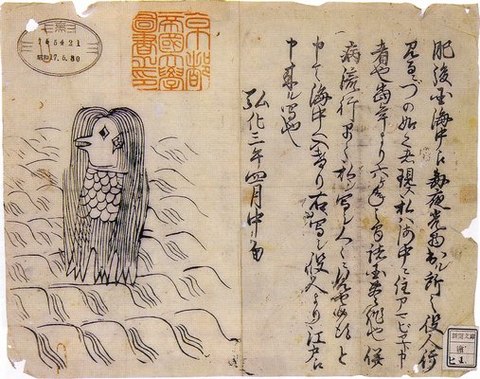 肥後国海中江毎夜光物出ル所之役人行
見るニづの如之者現ス私ハ海中ニ住アマビヱト申
者也当年より六ヶ年之間諸国豊作也併
病流行早々私ヲ写シ人々ニ見せ候得と
申て海中へ入けり右ハ写シ役人より江戸江
申来ル写也
弘化三年四月中旬
京都
帝國大學
圖書之印
165421
昭和17.5.30
新聞文庫